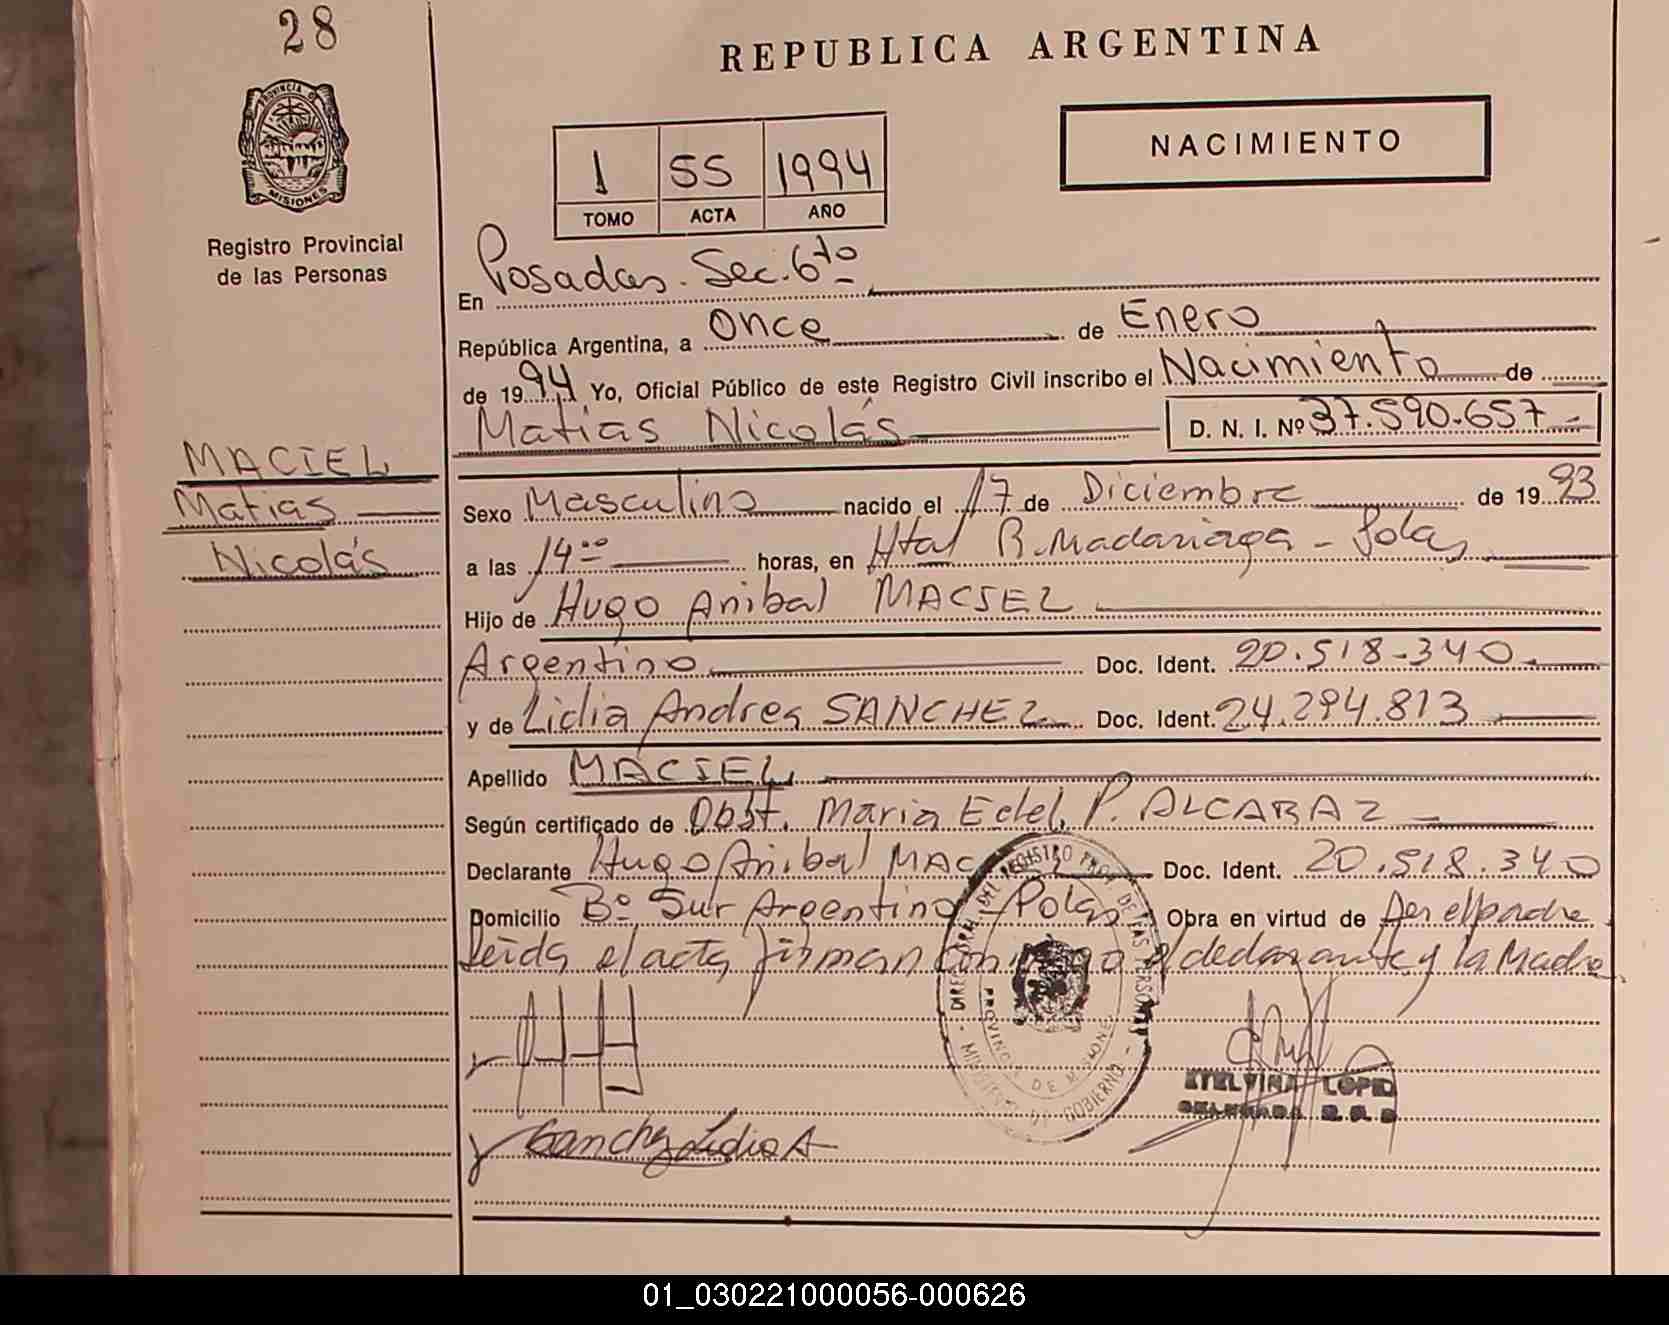 28
REPUBLICA ARGENTINA
PROVINCIA D
MISIONES
Registro Provincial
de las Personas
NACIMIENTO
1 55 1994
TOMO ACTA AÑO
En Posadas. Sec. 6to
República Argentina, a Once de Enero
de 1994 Yo, Oficial Público de este Registro Civil inscribo el Nacimiento de
Matias Nicolás D. N. I. Nº 37.590.657
MACIEL
Matias
Nicolás
Sexo Masculino nacido el 17 de Diciembre de 1993
a las 14 oo horas, en Htal R. Madariaga - Pdas
Hijo de Hugo Anibal MACIEL
Argentino Doc. Ident. 20.518.340
y de Lidia Andrea SANCHEZ Doc. Ident. 24.294.813
Apellido MACIEL
Según certificado de Obst. Maria Edel. P. ALCARAZ
Declarante Hugo Anibal MAC Doc. Ident. 20.518.340
Domicilio Bº Sur Argentino - Pdas Obra en virtud de ser el padre.
Leida el acta firman conmigo el declarante y la Madre.
DIREC GRAL. DEL REGISTRO PROV. DE LAS PERSONAS
PROVINCIA DE MISIONES
MINISTERIO DE GOBIERNO
ETELVINA LOPEZ
Sanchez Lidia A
01_030221000056-000626